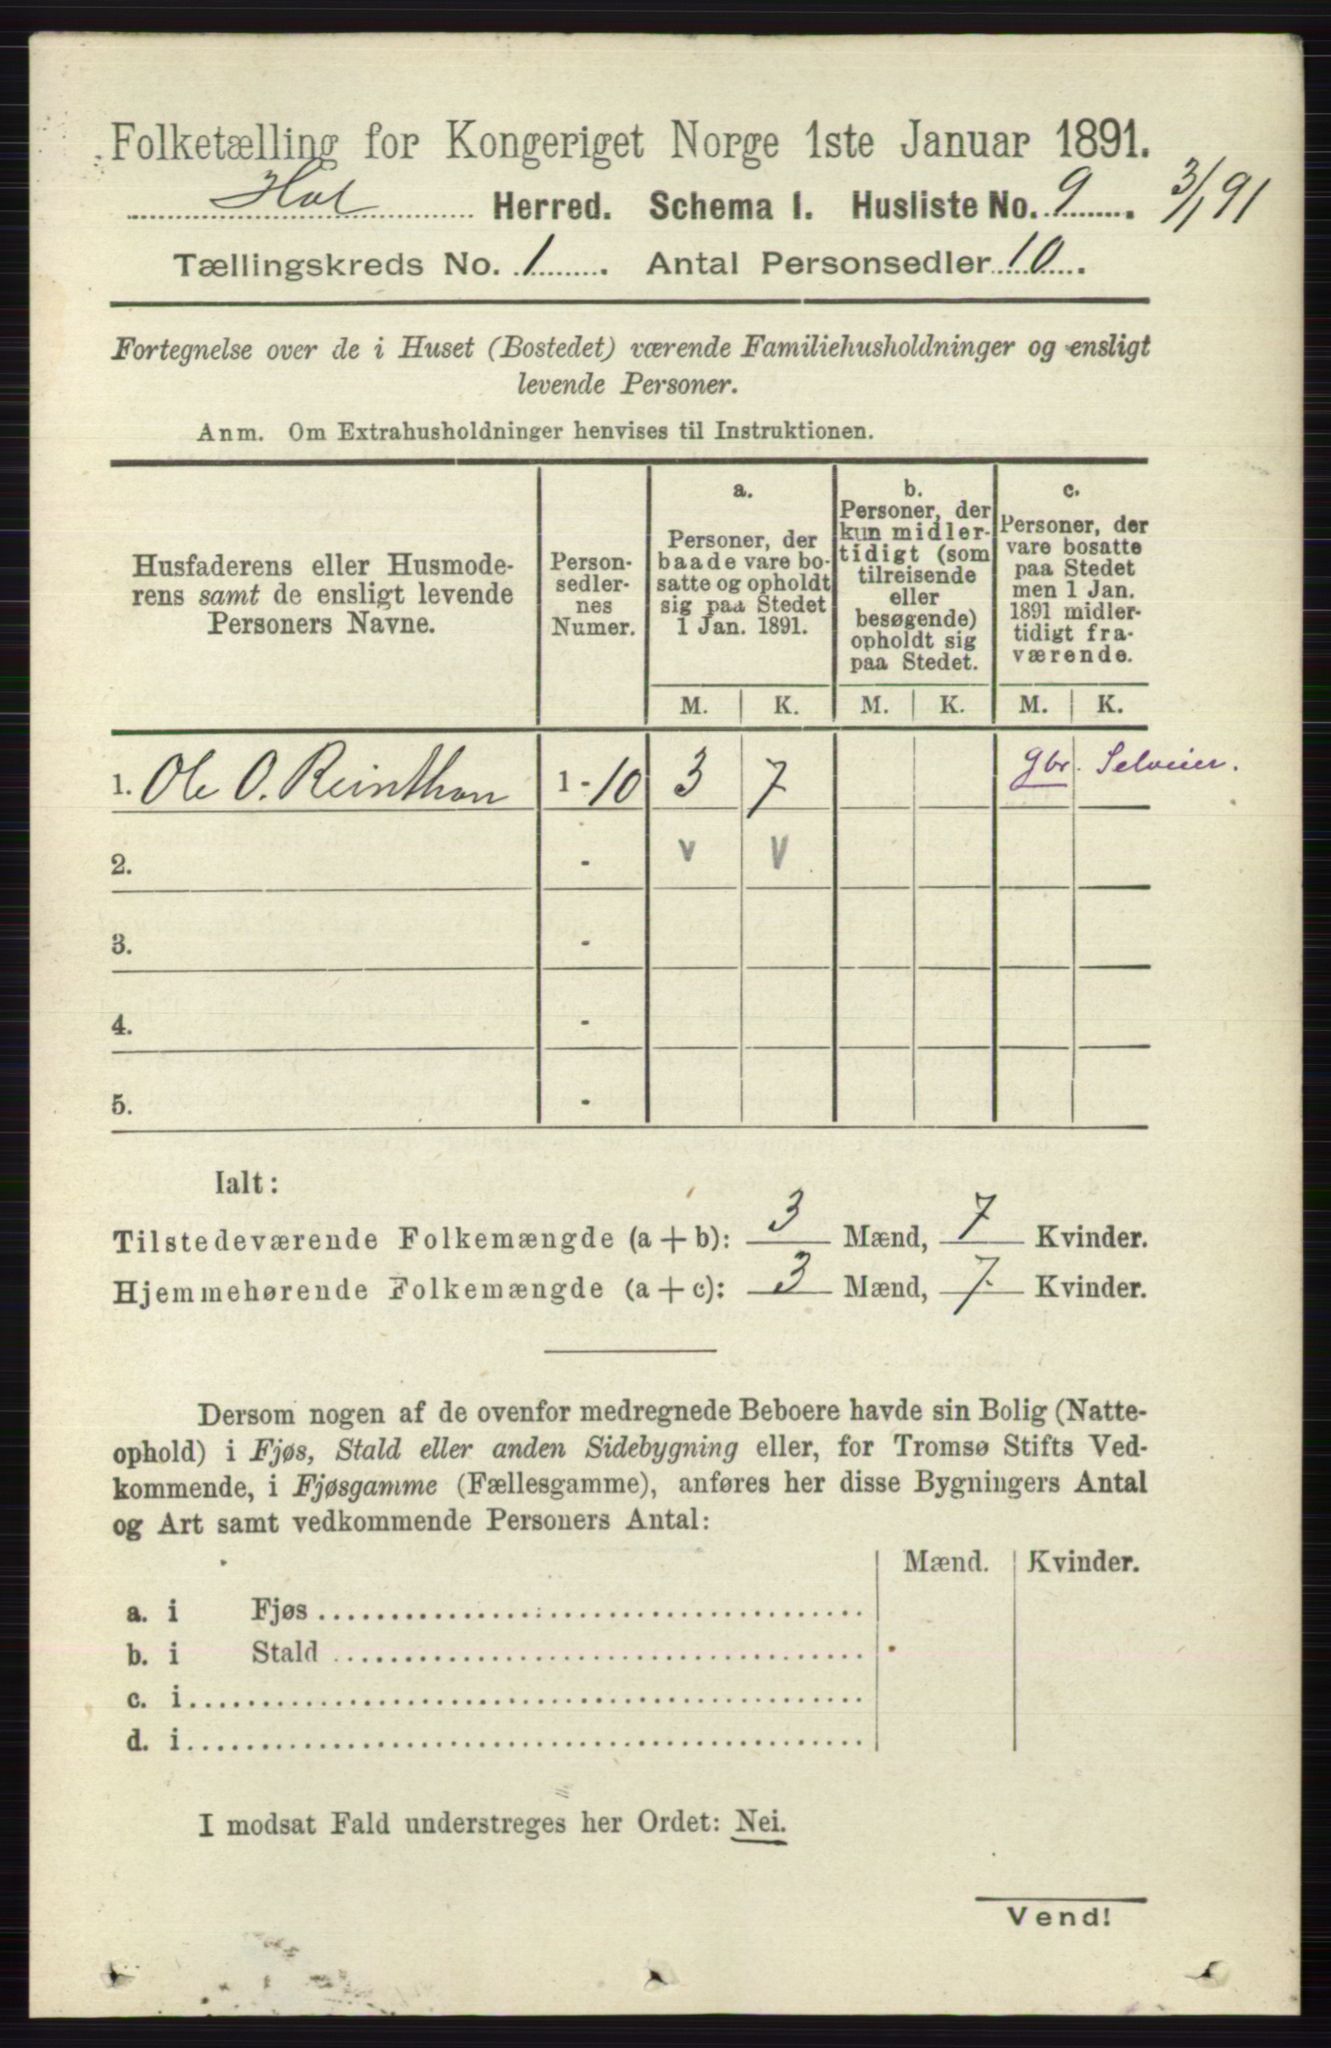 Folketælling for Kongeriget Norge 1ste Januar 1891.
Hol Herred. Schema 1. Husliste No. 9. 3/1 91
Tællingskreds No. 1. Antal Personsedler 10.
Fortegnelse over de i Huset (Bostedet) værende Familiehusholdninger og ensligt
levende Personer.
Anm. Om Extrahusholdninger henvises til Instruktionen.
Husfaderens eller Husmode-
rens samt de ensligt levende
Personers Navne.
Person-
sedler-
nes
Numer.
a.
Personer, der
baade vare bo-
satte og opholdt
sig paa Stedet
1 Jan. 1891.
b.
Personer, der
kun midler-
tidigt (som
tilreisende
eller
besøgende)
opholdt sig
paa Stedet.
c.
Personer, der
vare bosatte
paa Stedet
men 1 Jan.
1891 midler-
tidigt fra-
værende.
M. K. M. K. M. K.
1. Ole O. Reinthon 1 - 10 3 7 gbr. Selveier.
2. - v v
3. -
4. -
5. -
Ialt:
Tilstedeværende Folkemængde (a + b): 3 Mænd, 7 Kvinder.
Hjemmehørende Folkemængde (a + c): 3 Mænd, 7 Kvinder.
Dersom nogen af de ovenfor medregnede Beboere havde sin Bolig (Natte-
ophold) i Fjøs, Stald eller anden Sidebygning eller, for Tromsø Stifts Ved-
kommende, i Fjøsgamme (Fællesgamme), anføres her disse Bygningers Antal
og Art samt vedkommende Personers Antal:
Mænd. Kvinder.
a. i Fjøs
b. i Stald
c. i
d. i
I modsat Fald understreges her Ordet: Nei.
Vend!